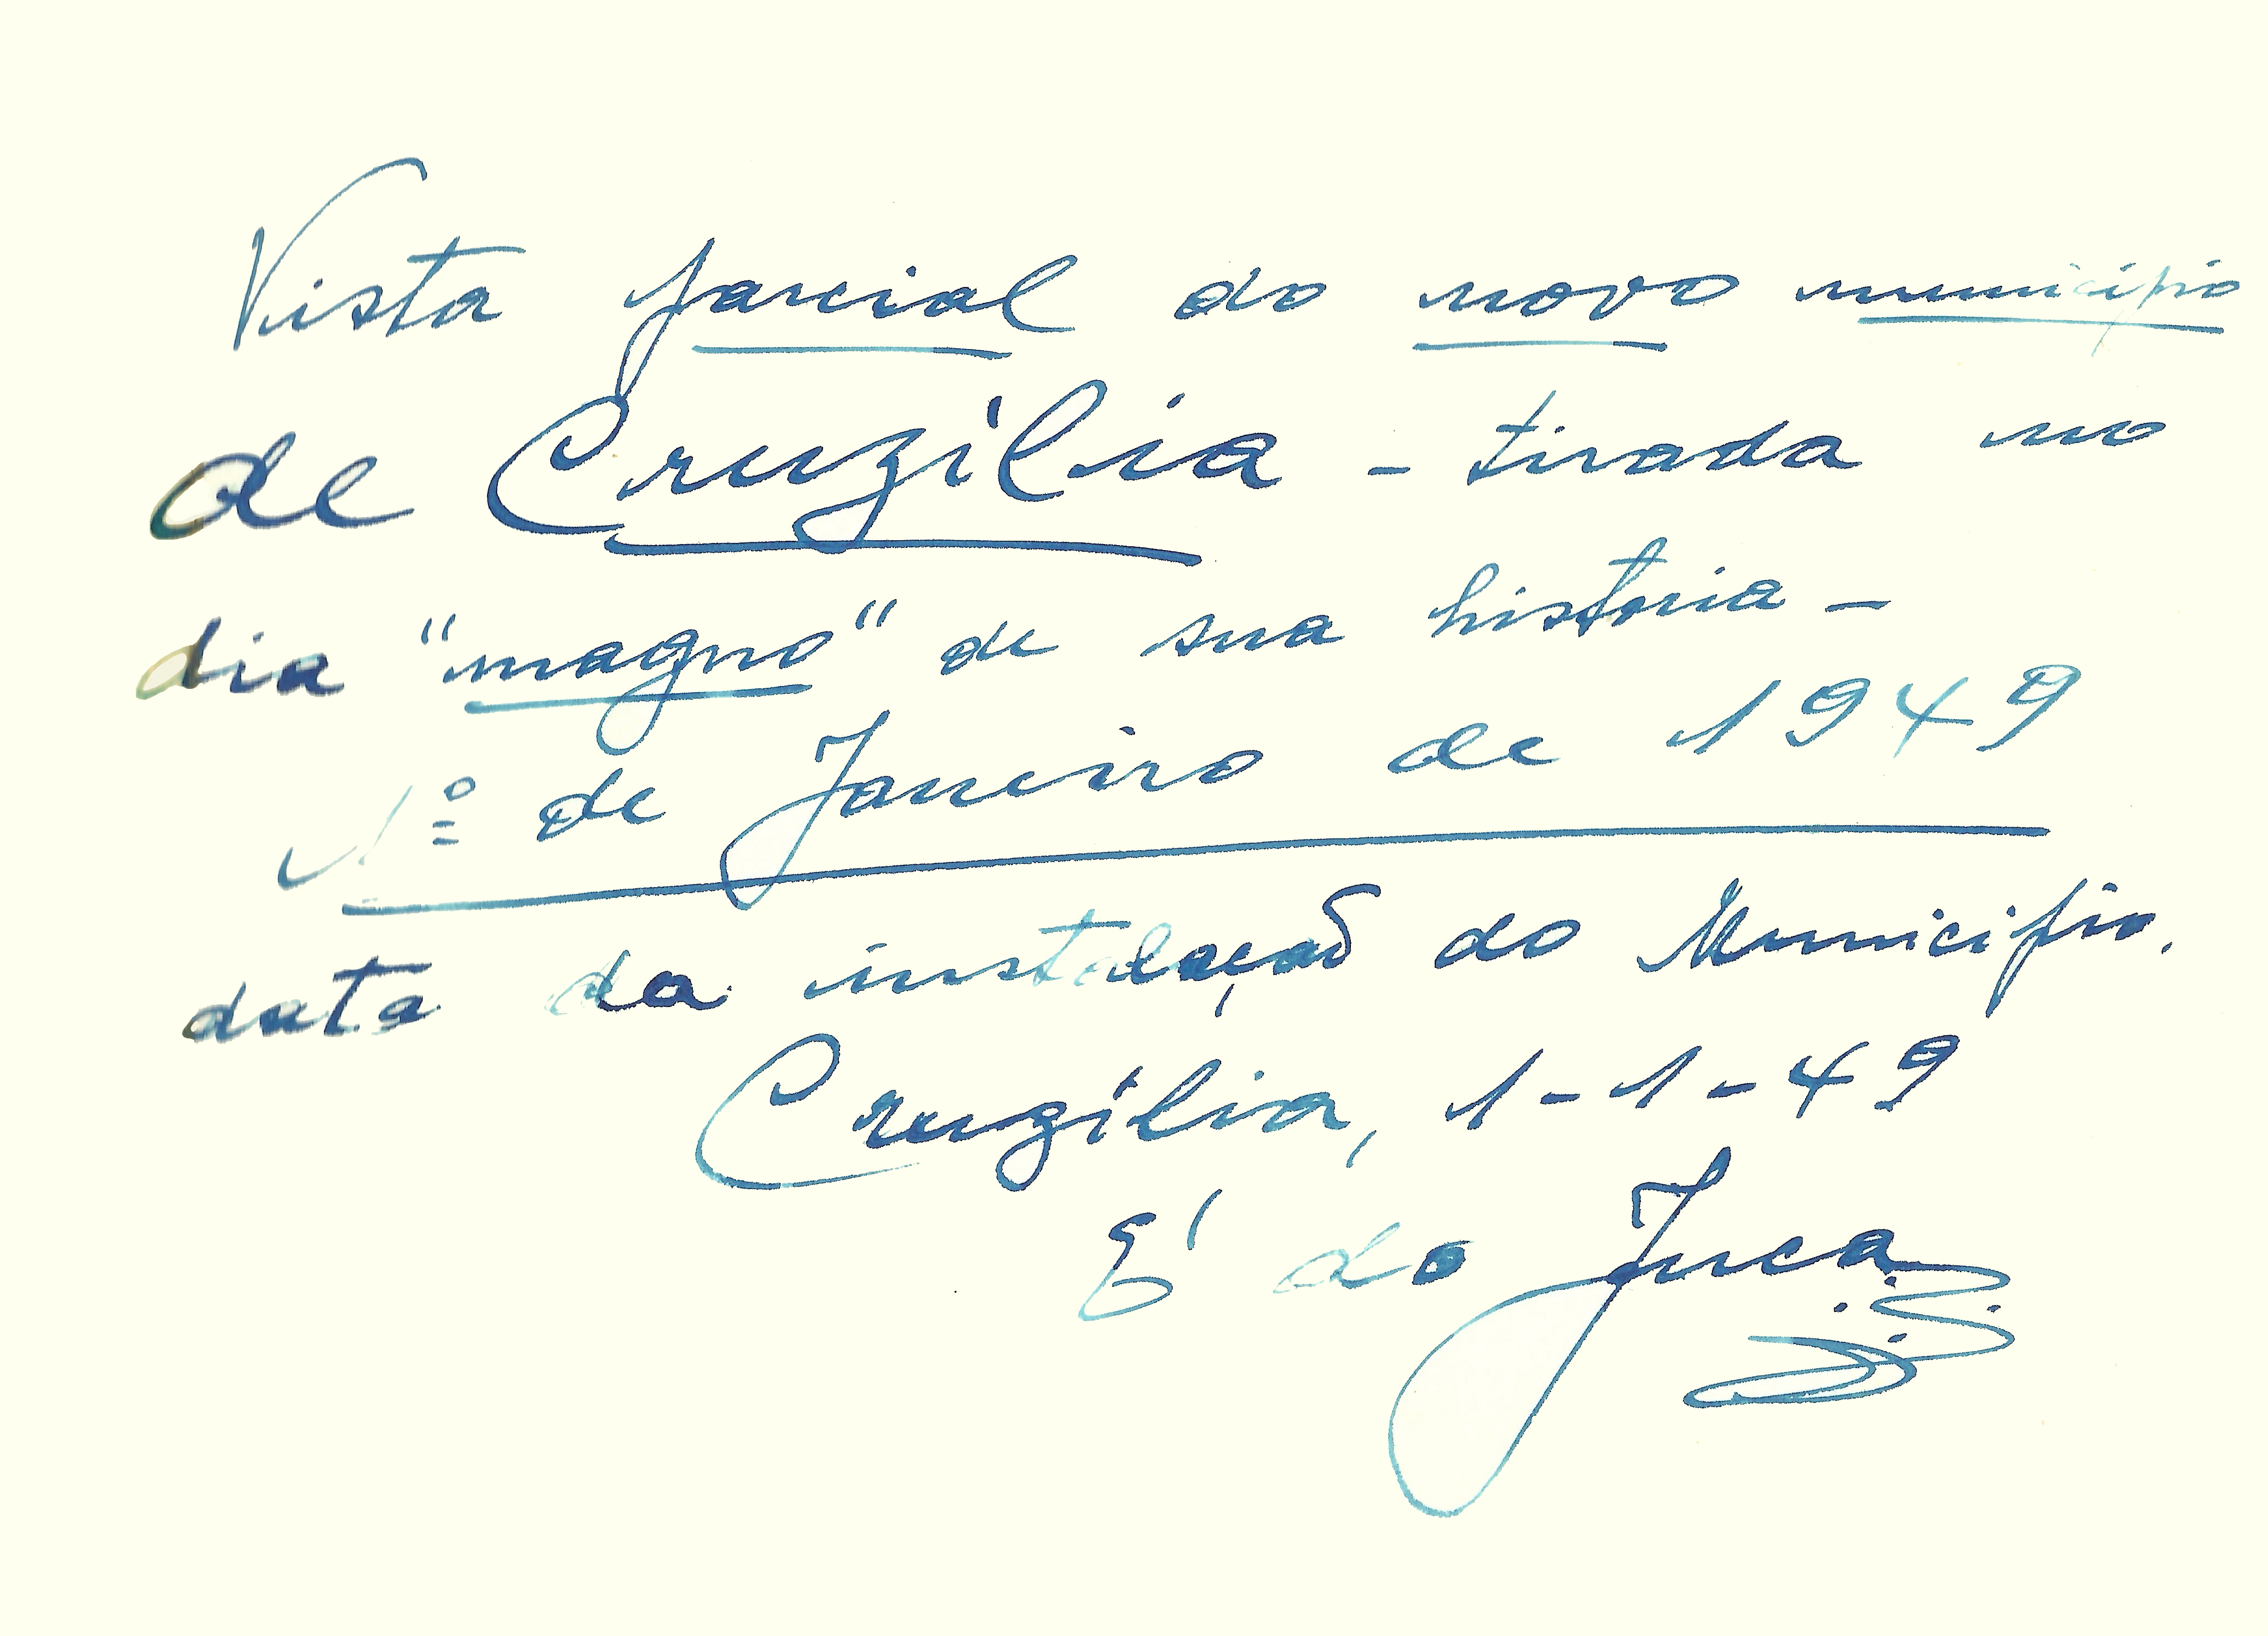 Vista parcial do novo municipio
de Cruzília - tirada no
dia "magno" de sua historia -
1º de Janeiro de 1949
data da instalação do Municipio.
Cruzília, 1-1-49
E' do Juca